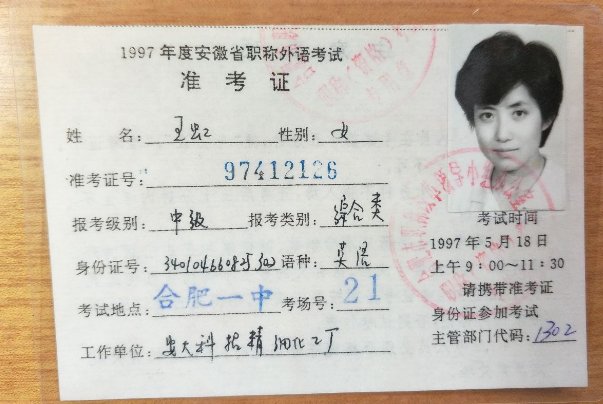 1997 年度安徽省职称外语考试
准 考 证
姓 名: 王虹 性别: 女
准考证号: 97412126
报考级别: 中级 报考类别: 综合类
身份证号: 340104660825302 语种: 英语
考试地点: 合肥一中 考场号: 21
工作单位: 安大科招精细化工厂
考试时间
1997 年 5 月 18 日
上午 9:00~11:30
请携带准考证
身份证参加考试
主管部门代码: 1302